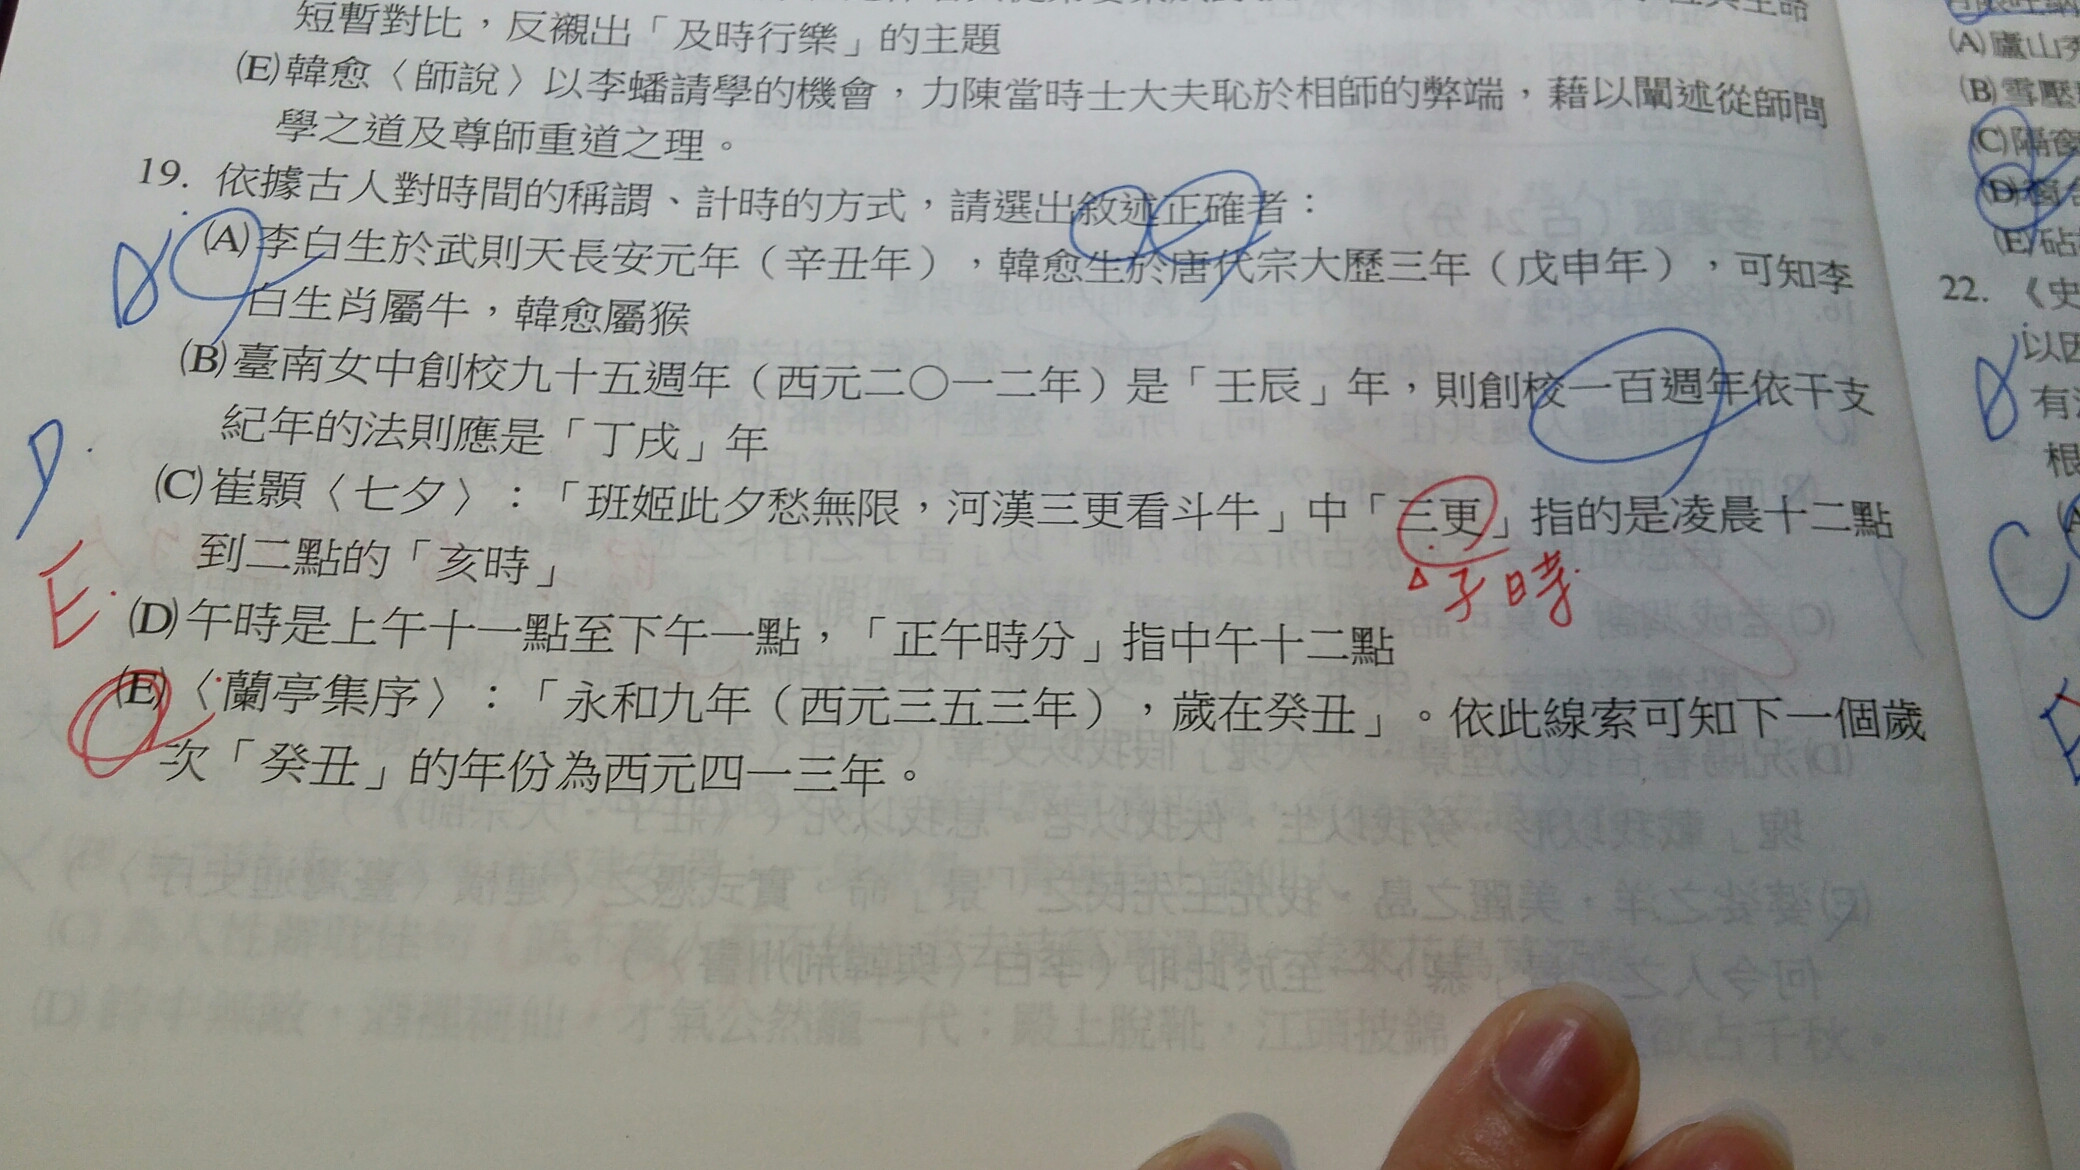 短暫對比，反襯出「及時行樂」的主題
(E)韓愈〈師說〉以李蟠請學的機會，力陳當時士大夫恥於相師的弊端，藉以闡述從師問
學之道及尊師重道之理。
19. 依據古人對時間的稱謂、計時的方式，請選出敘述正確者：
(A)李白生於武則天長安元年（辛丑年），韓愈生於唐代宗大歷三年（戊申年），可知李
白生肖屬牛，韓愈屬猴
(B)臺南女中創校九十五週年（西元二〇一二年）是「壬辰」年，則創校一百週年依干支
紀年的法則應是「丁戌」年
(C)崔顥〈七夕〉：「班姬此夕愁無限，河漢三更看斗牛」中「三更」指的是凌晨十二點
到二點的「亥時」
子時
(D)午時是上午十一點至下午一點，「正午時分」指中午十二點
E
(E)〈蘭亭集序〉：「永和九年（西元三五三年），歲在癸丑」。依此線索可知下一個歲
次「癸丑」的年份為西元四一三年。
(A)廬山
(B)雪壓
(C)隔窗
(D)
(E)砧
22.《史
以因
有
根
C